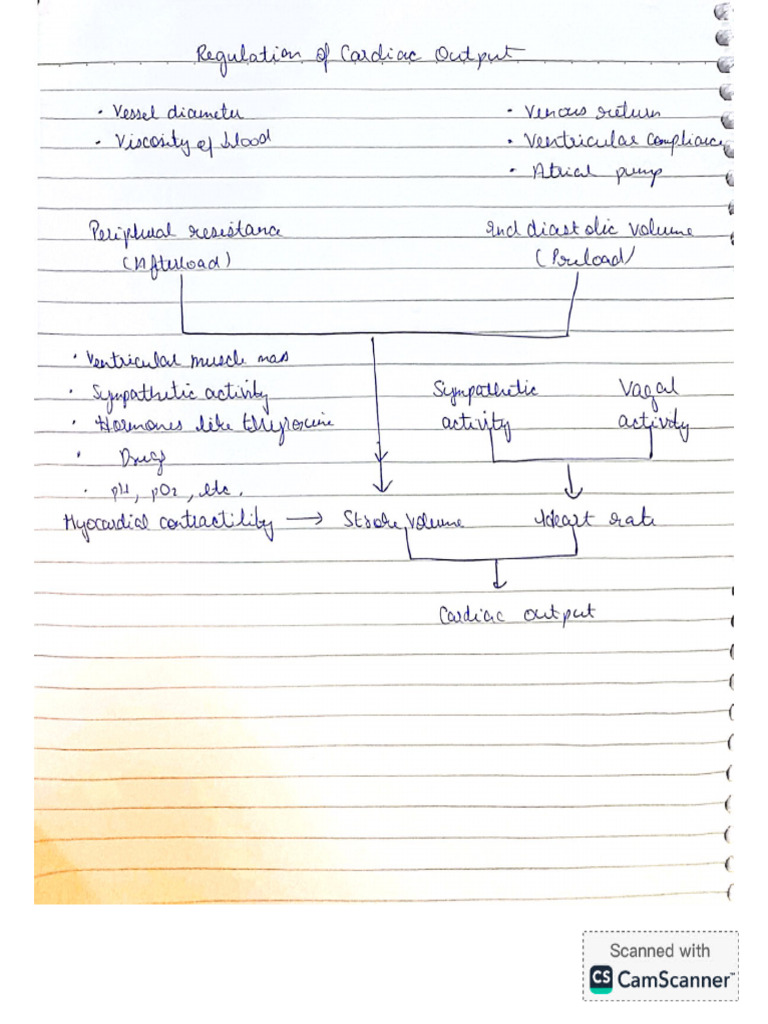 Regulation of Cardiac Output
• Vessel diameter
• Viscosity of blood
• Venous return
• Ventricular compliance
• Atrial pump
Peripheral resistance
(Afterload)
End diastolic volume
(Preload)
• Ventricular muscle mass
• Sympathetic activity
• Hormones like thyroxine
• Drugs
• pH, pO2, etc.
Sympathetic
activity
Vagal
activity
Myocardial contractility → Stroke volume
Heart rate
Cardiac output
Scanned with
CS CamScanner™